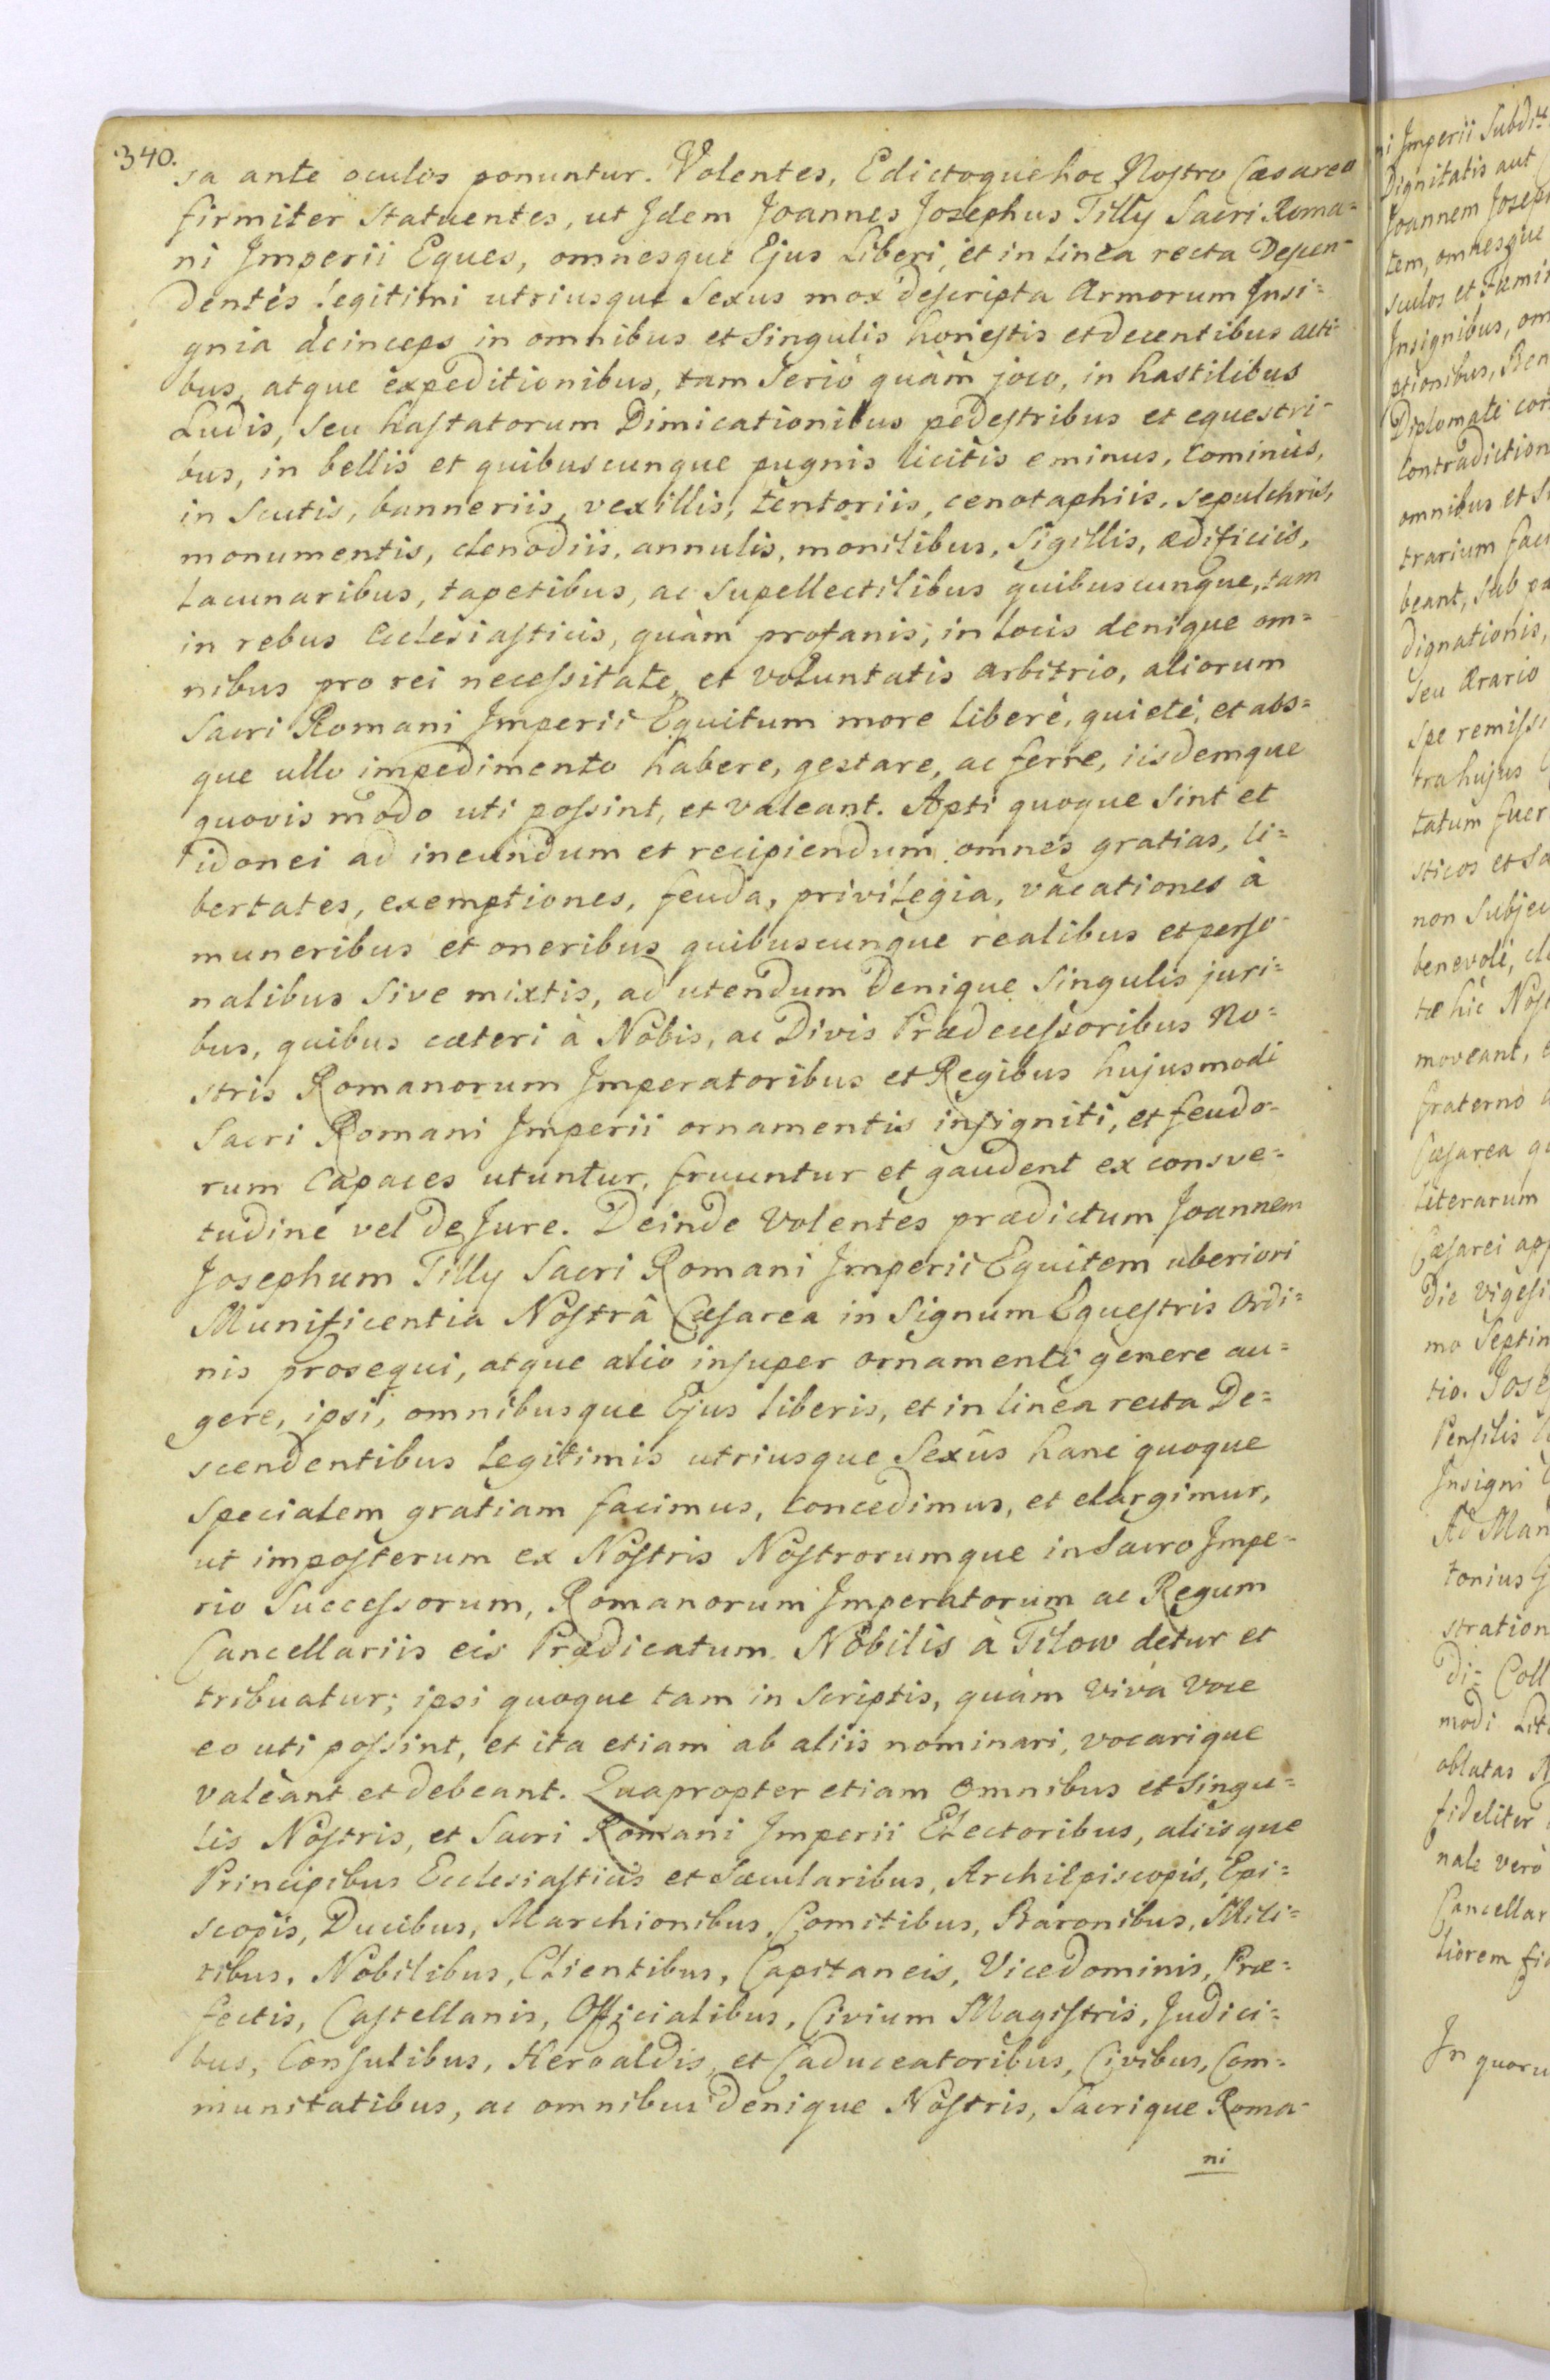 340.
sa ante oculos ponuntur. Volentes, Edictoque hoc Nostro Cæsareo
firmiter statuentes, ut Idem Joannes Josephus Tilly Sacri Roma=
ni Imperii Eques, omnesque Ejus Liberi, et in linea recta Descen=
dentes legitimi utriusque Sexus mox descripta Armorum Insi=
gnia deinceps in omnibus et singulis honestis et decentibus acti=
bus, atque expeditionibus, tam seriò quàm joco, in hastilibus
Ludis, seu hastatorum Dimicationibus pedestribus et equestri=
bus, in bellis et quibuscunque pugnis licitis eminus, cominùs,
in Scutis, banneriis, vexillis, tentoriis, cenotaphiis, sepulchris,
monumentis, clenodiis, annulis, monilibus, Sigillis, ædificiis,
Lacunaribus, tapetibus, ac Supellectilibus quibuscunque, tam
in rebus Ecclesiasticis, quàm profanis, in locis denique om=
nibus pro rei necessitate, et voluntatis arbitrio, aliorum
Sacri Romani Imperii Equitum more liberè, quietè, et abs=
que ullo impedimento habere, gestare, ac ferre, iisdemque
quovis modo uti possint, et valeant. Apti quoque sint et
idonei ad ineundum et recipiendum omnes gratias, li=
bertates, exemptiones, feuda, privilegia, vacationes à
muneribus et oneribus quibuscunque realibus et perso=
nalibus sive mixtis, ad utendum denique singulis juri=
bus, quibus cæteri à Nobis, ac Divis Prædecessoribus No=
stris Romanorum Imperatoribus et Regibus hujusmodi
Sacri Romani Imperii ornamentis insigniti, et feudo=
rum Capaces utuntur, fruuntur et gaudent ex consve=
tudine vel de Jure. Deinde Volentes prædictum Joannem
Josephum Tilly Sacri Romani Imperii Equitem uberiori
Munificentia Nostrâ Cæsarea in Signum Equestris Ordi=
nis prosequi, atque alio insuper ornamenti genere au=
gere, ipsi, omnibusque Ejus liberis, et in linea recta De=
scendentibus Legitimis utriusque Sexûs hanc quoque
specialem gratiam facimus, concedimus, et elargimur,
ut imposterum ex Nostris Nostrorumque in Sacro Impe=
rio Successorum, Romanorum Imperatorum ac Regum
Cancellariis eis Prædicatum Nobilis à Tilow detur et
tribuatur; ipsi quoque tam in Scriptis, quàm vivâ voce
eo uti possint, et ita etiam ab aliis nominari, vocarique
valeant et debeant. Quapropter etiam omnibus et singu=
lis Nostris, et Sacri Romani Imperii Electoribus, aliisque
Principibus Ecclesiasticis et Sæcularibus, Archiepiscopis, Epi=
scopis, Ducibus, Marchionibus, Comitibus, Baronibus, Mili=
tibus, Nobilibus, Clientibus, Capitaneis, Vicedominis, Præ=
fectis, Castellanis, Officialibus, Civium Magistris, Judici=
bus, Consulibus, Heroaldis, et Caduceatoribus, Civibus, Com=
munitatibus, ac omnibus denique Nostris, Sacrique Roma=
ni
ni Imperii Subdit
Dignitatis aut
Joannem Joseph
tem, omnesque
sculos et Fami
Insignibus, om
ptionibus, Ben
Diplomate con
Contradiction
omnibus et Si
trarium fac
beant, sub pæ
dignationis,
seu Ærario
spe remissi
tra hujus
tatum fuer
sticos et Sa
non Subjec
benevolè, cl
tæ hic Nost
moveant,
fraterno a
Cæsarea
Literarum
Cæsarei app
die vigesi
mo Septin
tio. Jose
Pensilis
Insigni
Ad Man
tonius
stration
di= Coll
modi Lit
oblatas
fideliter
nali verò
Cancellar
liorem fi
In quoru